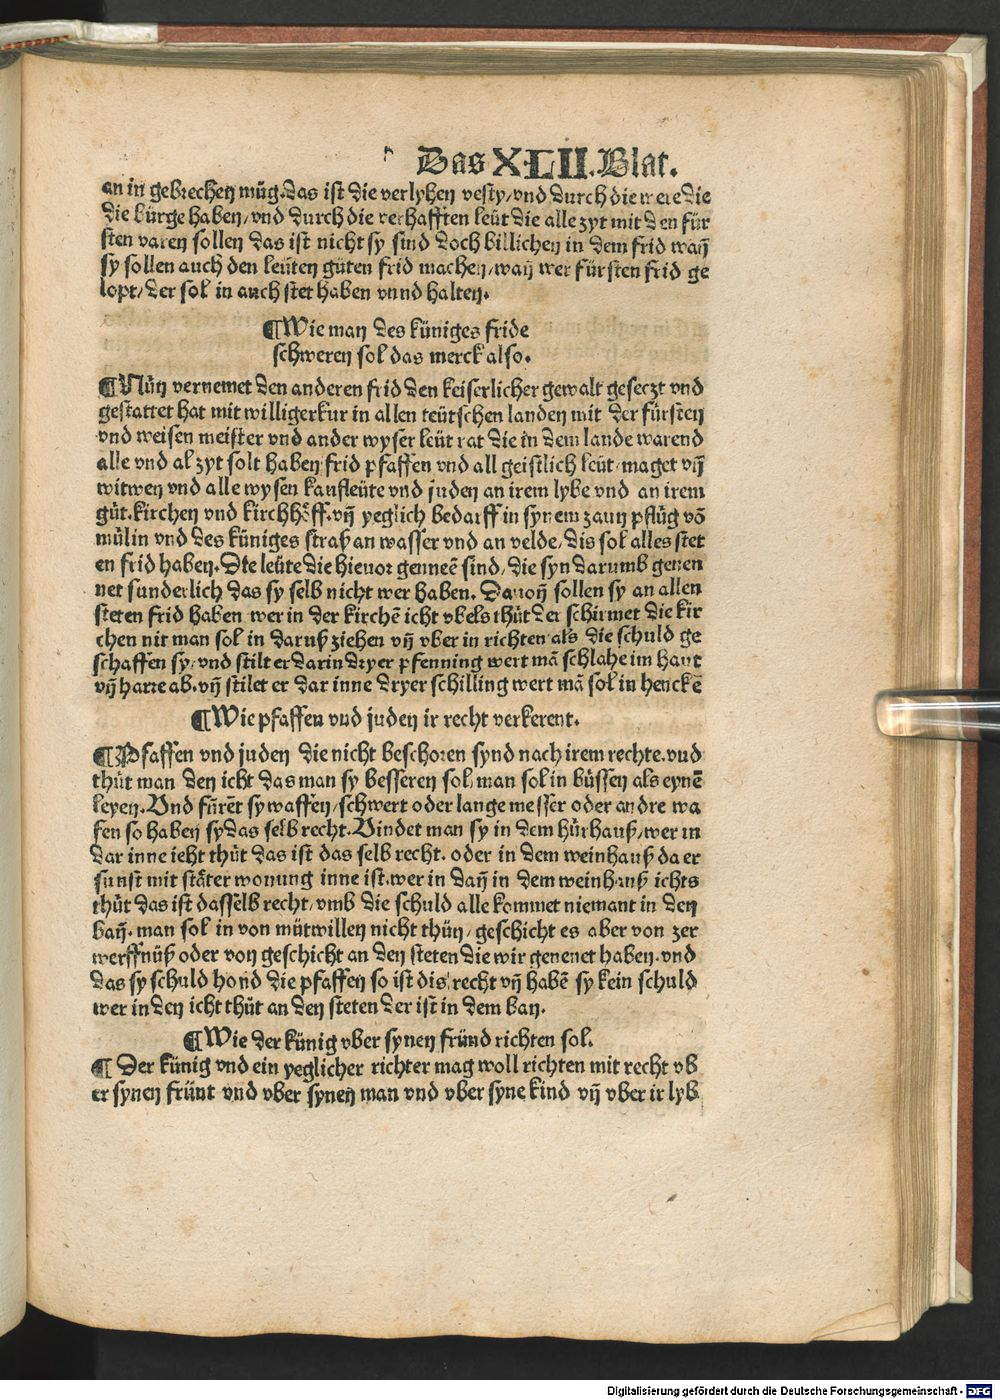 Das XLII. Blat.
an in gebrechen müg. das ist die verlyhen vesty/ vnd durch die were die
die bürge haben/ vnd durch die verhafften leüt die alle zyt mit den für
sten varen sollen das ist nicht sy sind doch billichen in dem frid wañ
sy sollen auch den leüten güten frid machen/ wañ wer fürsten frid ge
lopt/ der sol in auch stet haben vnnd halten.
¶Wie man des küniges fride
schweren sol das merck also.
¶Nün vernemet den anderen frid den keiserlicher gewalt geseczt vnd
gestattet hat mit williger kur in allen teütschen landen mit der fürsten
vnd weisen meister vnd ander wyser leüt rat die in dem lande warend
alle vnd al zyt solt haben frid pfaffen vnd all geistlich leüt/ maget vñ
witwen vnd alle wysen kaufleüte vnd juden an irem lybe vnd an irem
güt. kirchen vnd kirchhöff. vñ yeglich bedarff in synem zaun pflüg vō
mülin vnd des küniges straß an wasser vnd an velde/ dis sol alles stet
en frid haben. Die leüte die hieuor genneē sind/ die syn darumb genen
net sunderlich das sy selb nicht wer haben. Dauoñ sollen sy an allen
steten frid haben wer in der kirchē icht vbels thüt der schirmet die kir
chen nit man sol in daruß ziehen vñ vber in richten als die schuld ge
schaffen sy/ vnd stilt er darin dryer pfenning wert mā schlahe im haut
vñ harre ab. vñ stilet er dar inne dryer schilling wert mā sol in henckē
¶Wie pfaffen vnd juden ir recht verkerent.
¶Pfaffen vnd juden die nicht beschoren synd nach irem rechte. vnd
thüt man den icht das man sy besseren sol/ man sol in büssen als eynē
leyen. Vnd fürēt sy waffen/ schwert oder lange messer oder andre wa
fen so haben sy das selb recht. Vindet man sy in dem hürhauß/ wer in
dar inne ieht thüt das ist das selb recht. oder in dem weinhauß da er
sunst mit stäter wonung inne ist. wer in dañ in dem weinhauß ichts
thüt das ist dasselb recht/ vmb die schuld alle kommet niemant in den
bañ. man sol in von mütwillen nicht thün/ geschicht es aber von zer
werffnüß oder von geschicht an den steten die wir genenet haben. vnd
das sy schuld hond die pfaffen so ist dis recht vñ habē sy kein schuld
wer in den icht thüt an den steten der ist in dem ban.
¶Wie der künig vber synen fründ richten sol.
¶ Der künig vnd ein yeglicher richter mag woll richten mit recht vb
er synen frünt vnd vber synen man vnd vber syne kind vñ vber ir lyb
Digitalisierung gefördert durch die Deutsche Forschungsgemeinschaft - DFG